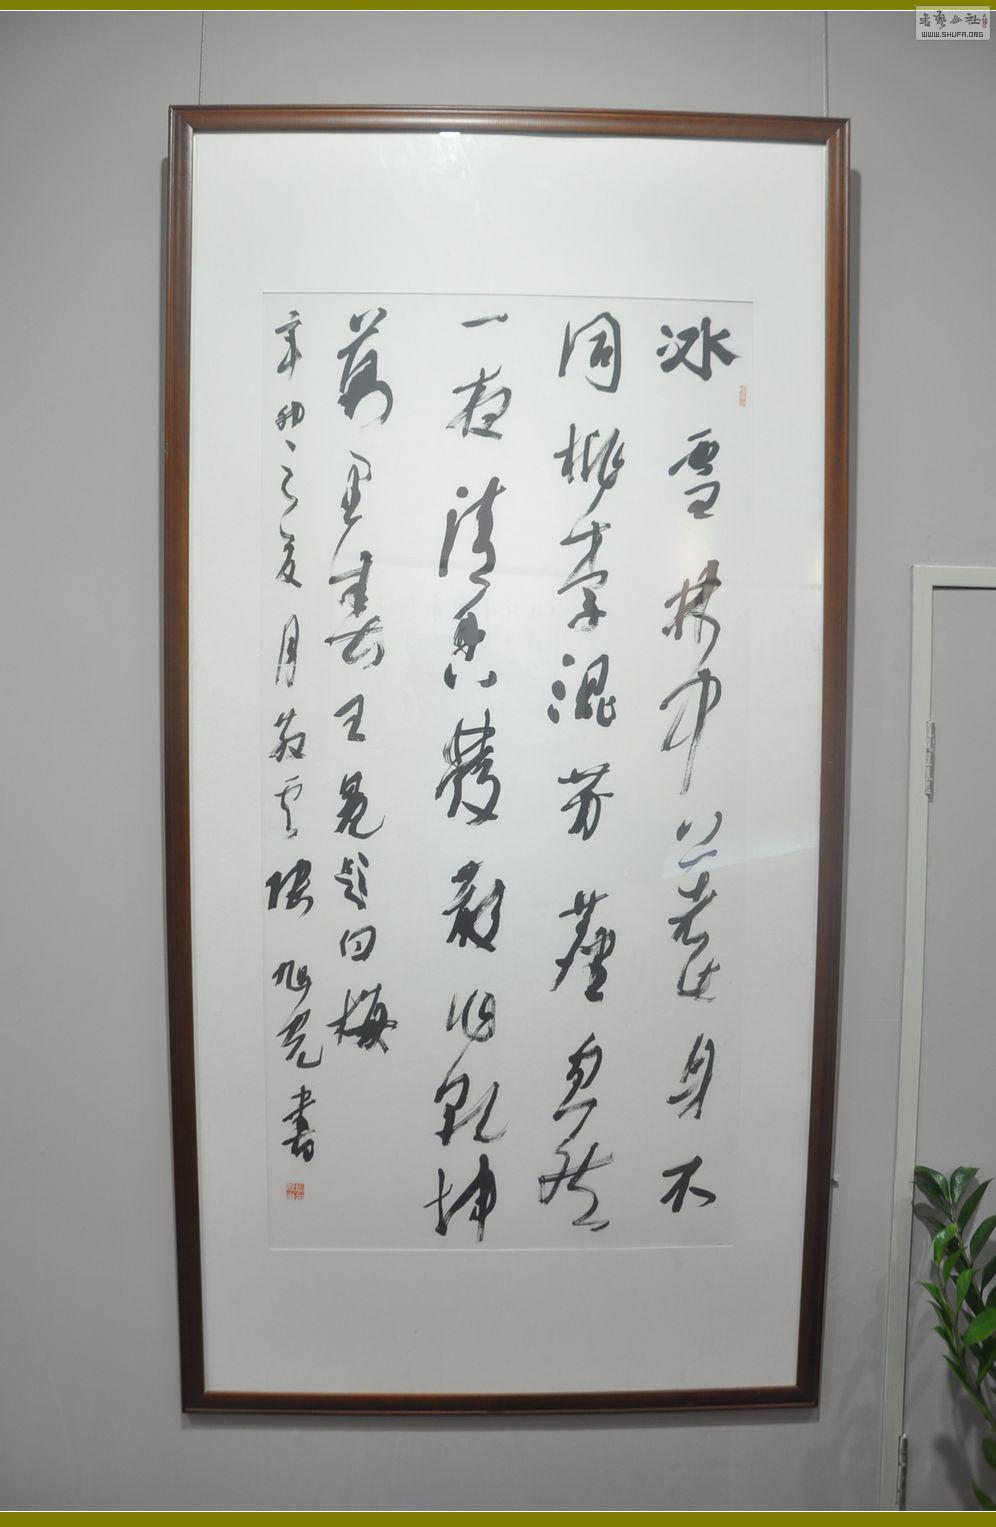 冰雪林中著此身不
同桃李混芳塵忽然
一夜清香發散作乾坤
萬里春王冕題白梅
辛卯之夏月散雲張旭光書
書藝公社
WWW.SHUFA.ORG